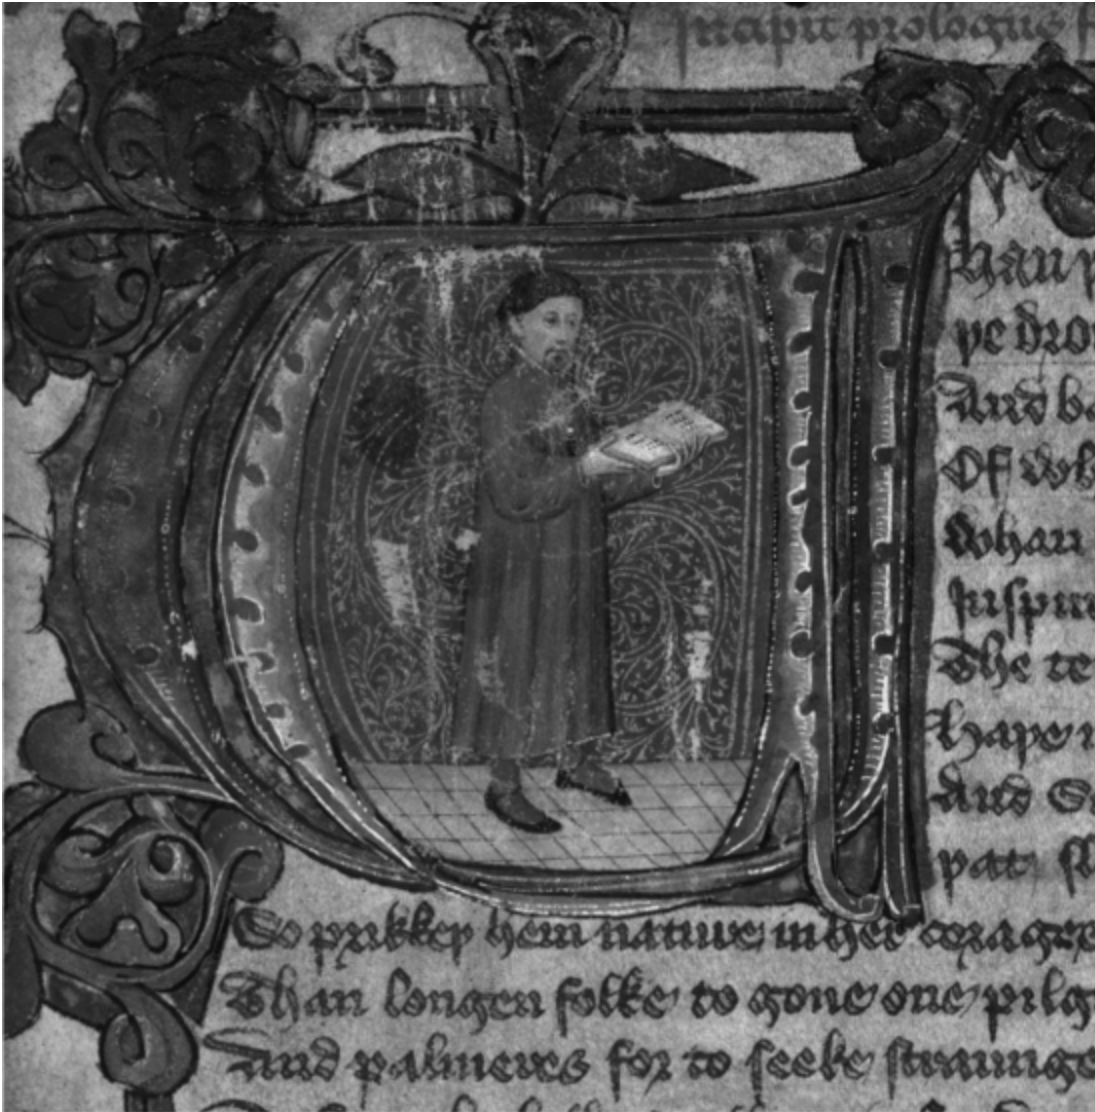 Incipit prologus f
Whan
þe dro
And ba
Of Wh
Whan
Inspire
The te
haþe
And
þat sl
So prikkeþ hem nature in her corages
Than longen folke to gone one pilg
And palmeres for to seeke straunge